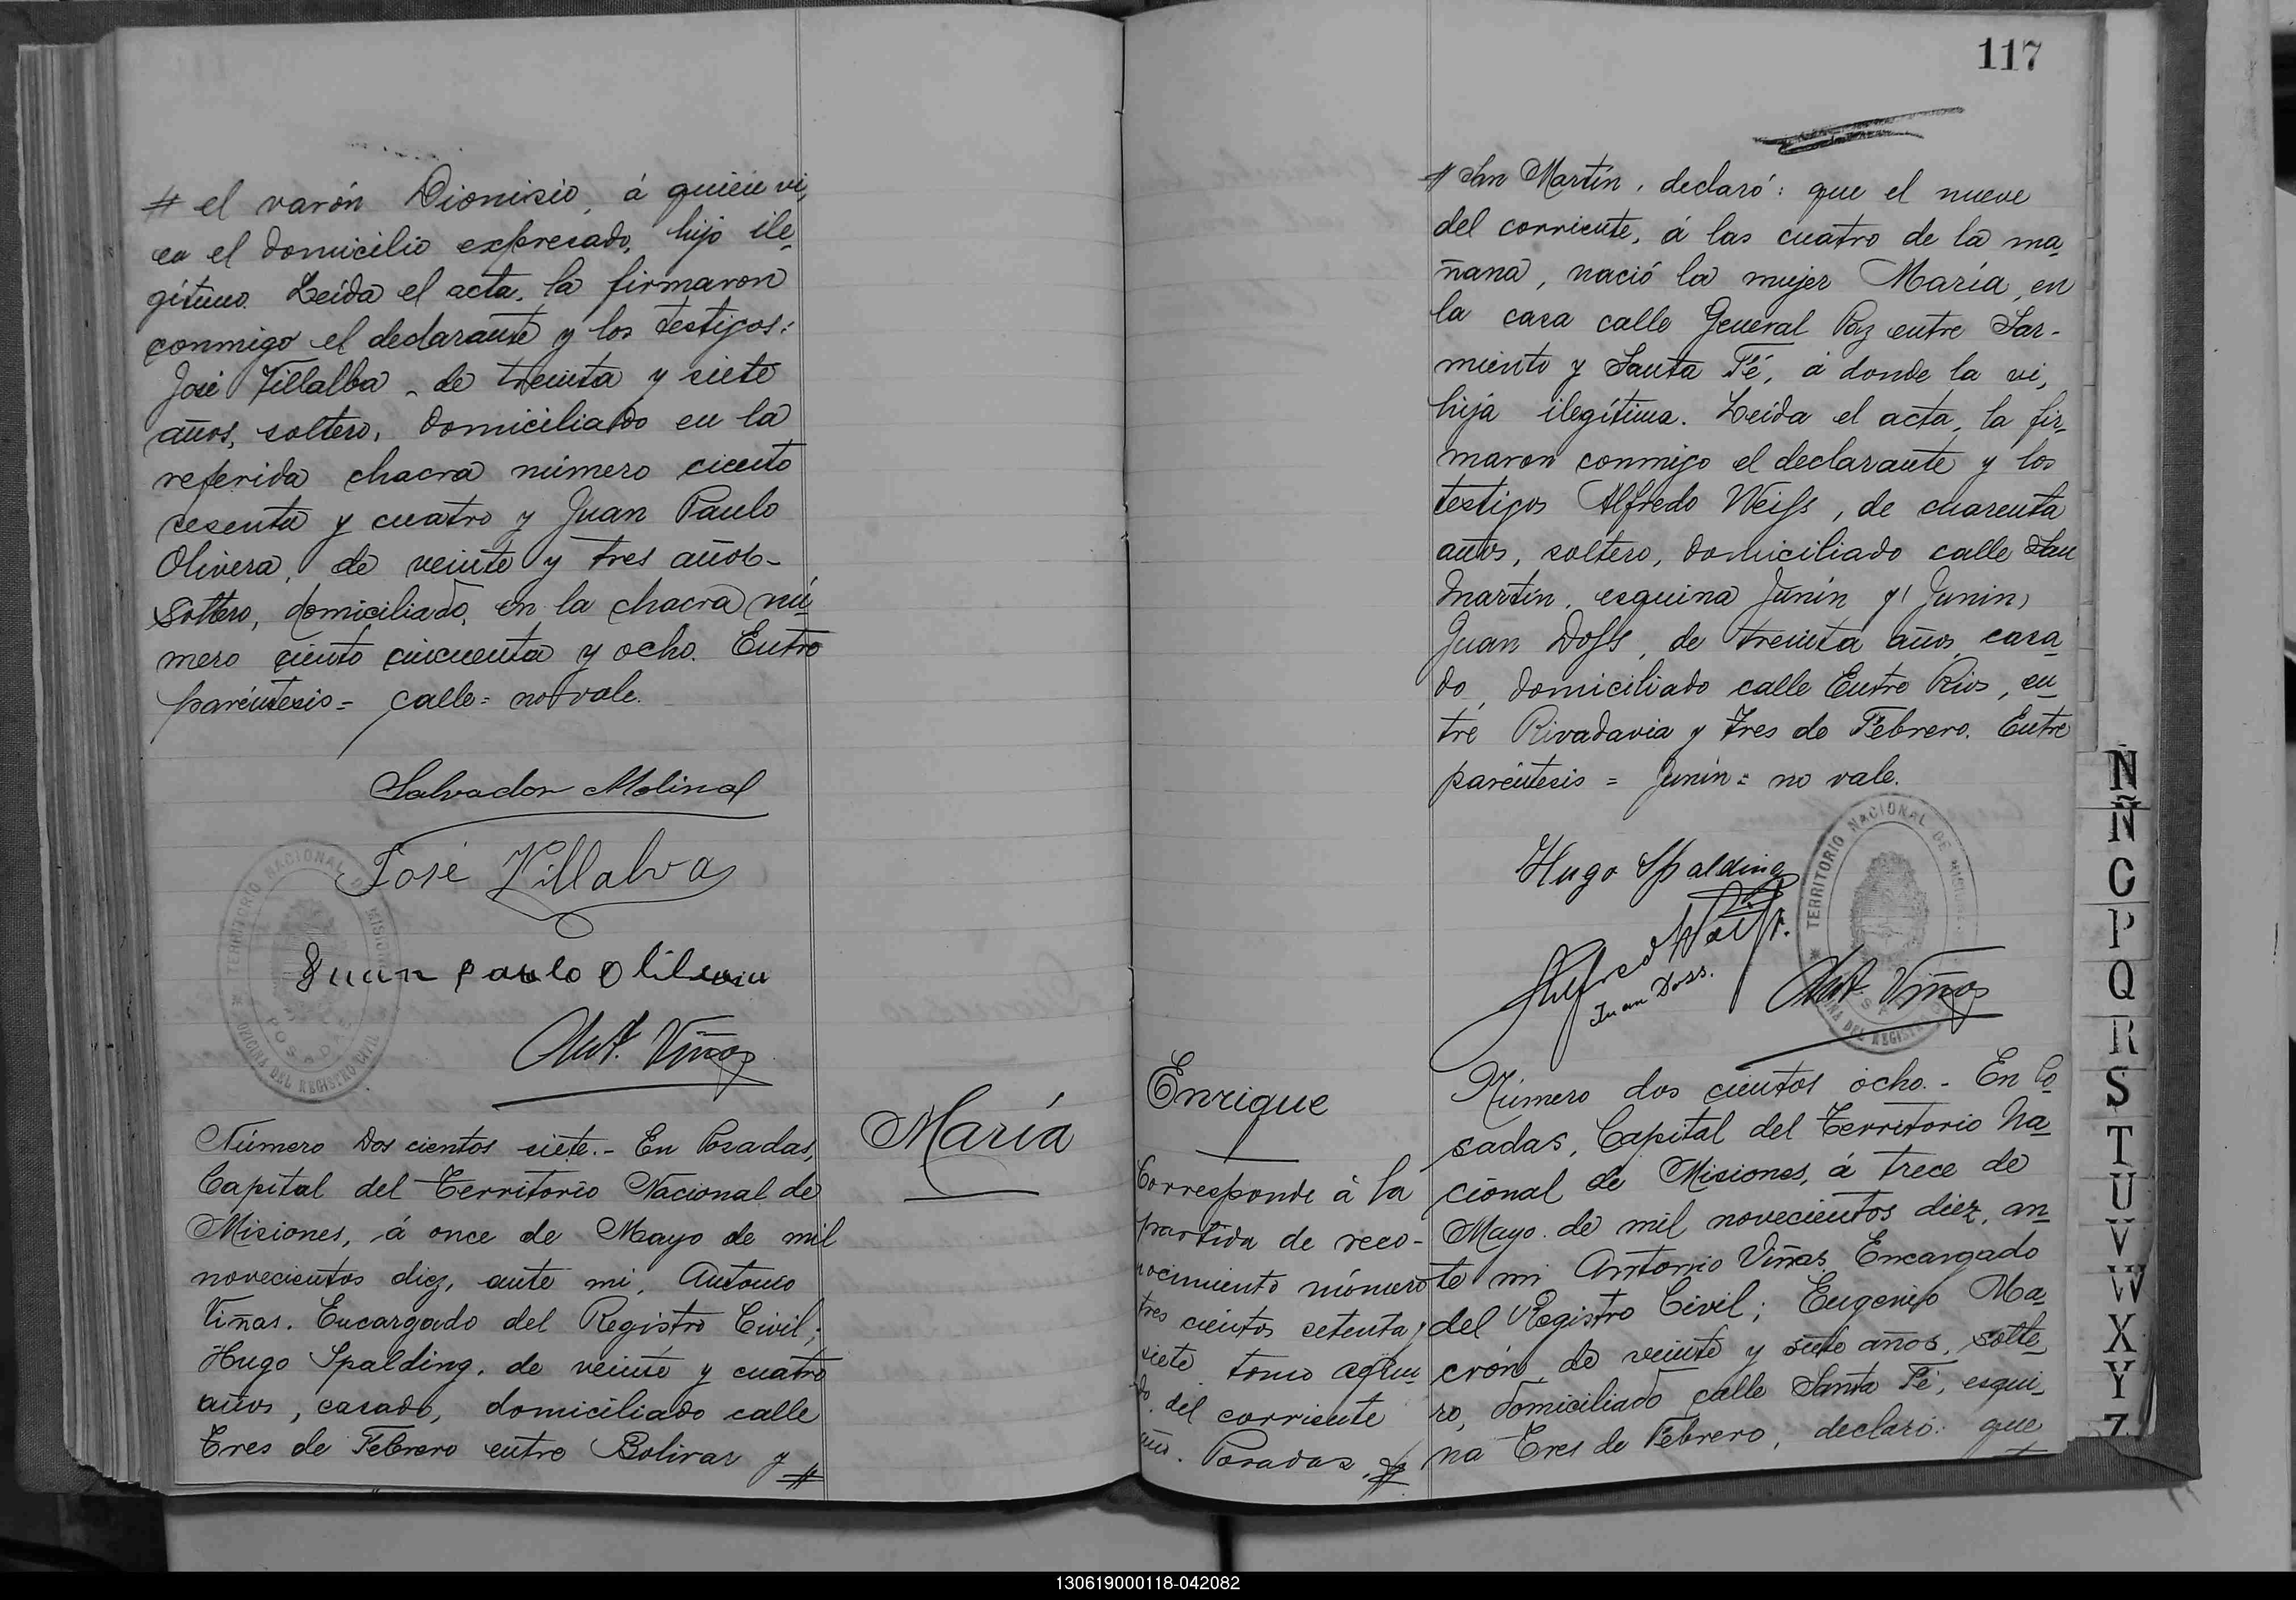 # el varón Dionisio, á quien vi,
en el domicilio expresado, hijo ile-
gítimo. Leída el acta, la firmaron
conmigo el declarante y los testigos:
José Villalba, de treinta y siete
años, soltero, domiciliado en la
referida chacra número ciento
sesenta y cuatro y Juan Paulo
Olivera, de veinte y tres años-
soltero, domiciliado, en la chacra nú-
mero ciento cincuenta y ocho. Entre
paréntesis = calle = no vale.
Salvador Molina
José Villalva
Juan Paulo
Ant. Viñas
TERRITORIO NACIONAL DE MISIONES
POSADAS
OFICINA DEL REGISTRO CIVIL
Número dos cientos siete.- En Posadas,
Capital del Territorio Nacional de
Misiones, á once de Mayo de mil
novecientos diez, ante mi, Antonio
Viñas. Encargado del Registro Civil;
Hugo Spalding, de veinte y cuatro
años, casado, domiciliado calle
Tres de Febrero entre Bolivar y #
María
117
# San Martín, declaró: que el nueve
del corriente, á las cuatro de la ma-
ñana, nació la mujer María, en
la casa calle General Paz entre Sar-
miento y Santa Fé, á donde la vi,
hija ilegítima. Leída el acta, la fir-
maron conmigo el declarante y los
testigos Alfredo Weiss, de cuarenta
años, soltero, domiciliado calle San
Martín, esquina Junín y (Junin)
Juan Doss, de treinta años, casa-
do, domiciliado calle Entre Rios, en-
tre Rivadavia y Tres de Febrero. Entre
paréntesis = Junín = no vale.
Hugo Spalding
Alfredo Weiss
Juan Doss.
Ant. Viñas
TERRITORIO NACIONAL DE MISIONES
OFICINA DEL REGISTRO CIVIL
Enrique
Corresponde á la
partida de reco-
nocimiento número
tres cientos setenta y
siete tomo segun-
do, del corriente
año. Posadas, #
Número dos cientos ocho.- En Po-
sadas, Capital del Territorio Na-
cional de Misiones, á trece de
Mayo de mil novecientos diez, an-
te mi Antonio Viñas Encargado
del Registro Civil; Eugenio Ma-
crón, de veinte y siete años, solte-
ro, domiciliado calle Santa Fé, esqui-
na Tres de Febrero, declaró: que
N
Ñ
O
P
Q
R
S
T
U
V
W
X
Y
Z
130619000118-042082